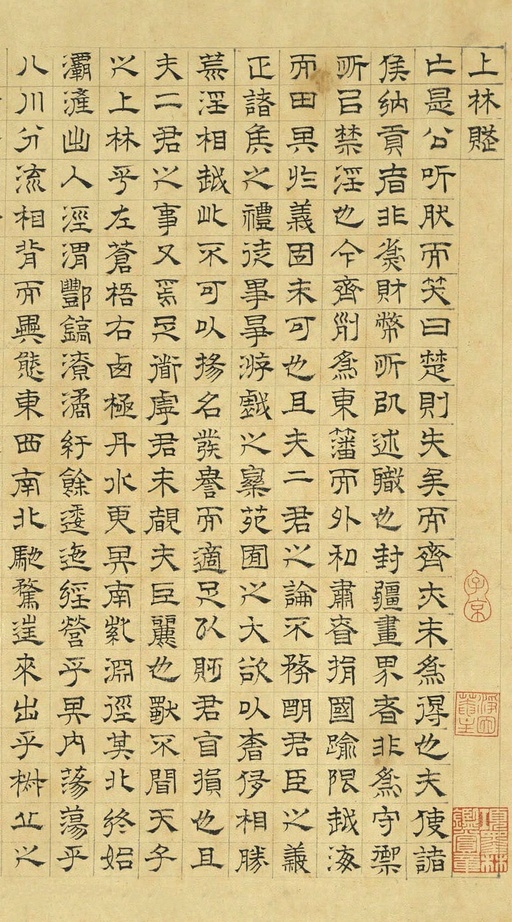 上林賦
亡是公听肰而笑曰楚則失矣而齊亦未為得也夫使諸
侯納貢者非為財幣所以述職也封疆畫界者非為守禦
所以禁淫也今齊列為東藩而外私肅眘捐國踰限越海
而田其於義固未可也且夫二君之論不務明君臣之義
正諸侯之禮徒事爭游戲之樂苑囿之大欲以奢侈相勝
荒淫相越此不可以揚名發譽而適足以貶君自損也且
夫二君之事又焉足道虖君未覩夫巨麗也獨不聞天子
之上林乎左蒼梧右西極丹水更其南紫淵徑其北終始
灞滻出入涇渭酆鎬潦潏紆餘逶迤經營乎其內蕩蕩乎
八川分流相背而異態東西南北馳騖往來出乎椒丘之
子京
項墨林鑑賞章